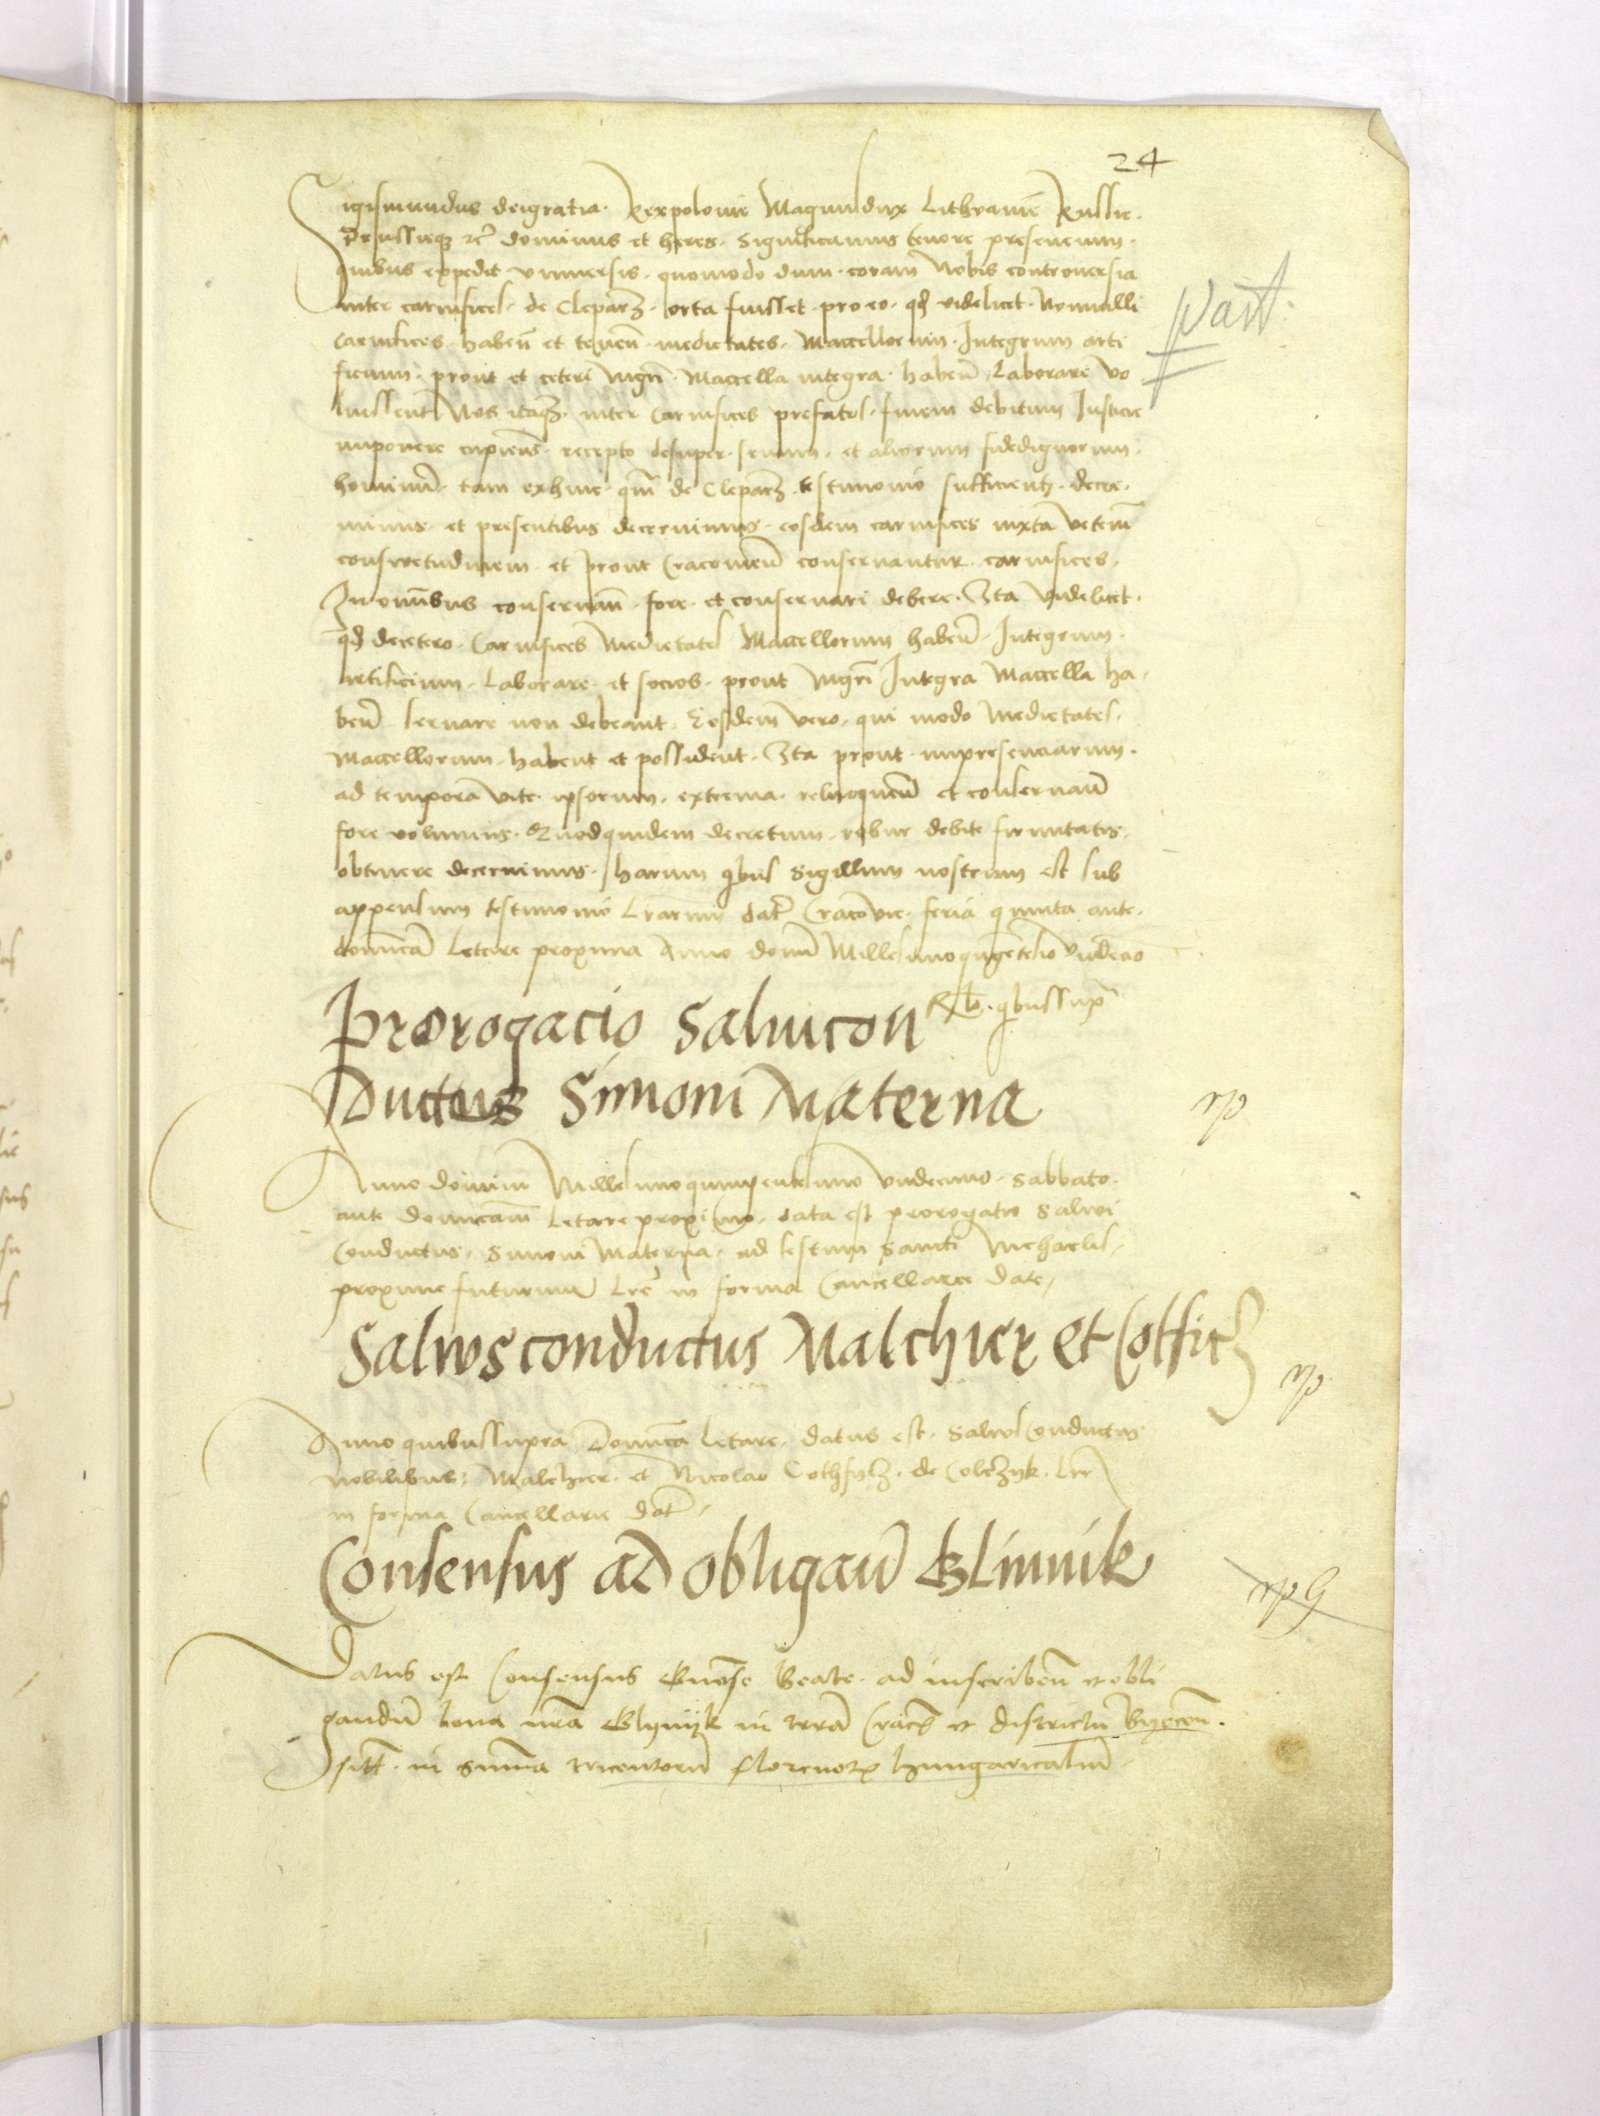 24
Sigismundus deigratia. Rexpolonie Magnusdux Lithvanie Russie.
Prussieqz etc dominus et heres. Significamus tenore presencium.
quibus expedit vniuersis. quomodo dum. coram Nobis controuersia
inter carnifices. de Cleparz. orta fuisset. pro eo. qd videlicet. Nonnulli
Carnifices. haben et tenen. medietates. Maccellorum. Integrum arti
ficium. prout et ceteri Mgri. Maccella integra. haben Laborare vo
luissent Nos itaqz. inter Carnifices prefatos. finem debitum Justicie
imponere cupiens. recepto desuper. seniorum. et aliorum fidedignorum.
hominum. tam exhinc. qm de Cleparz testimonio sufficienti. decre.
uimus. et presentibus decernimus. eosdem carnifices iuxta veterem
consvetudinem. et prout Cracouien conseruantur. carnifices.
In omnibus conseruan. fore. et conseruari debere. Ita videlicet.
qd decetero. Carnifices Medietates Maccellorum haben. Integrum.
artificium. Laborare. et socios. prout Mgri Integra Maccella ha.
ben seruare non debeant. Eosdem vero. qui modo Medietates.
Maccellorum. habent et possident. Ita prout. inpresenciarum.
ad tempora vite. ipsorum. extrema. relinquen et conseruan
fore volumus. Quodquidem decretum. robur debite firmitatis.
obtinere decernimus. harum qbus Sigillum nostrum est sub
appensum testimonio Lrarum dat Cracovie. feria quinta ante.
dominicam Letare proxima Anno domi Millesimoqngetesio Vndecio
part.
Rlo. qbussupra
Prorogacio Salvicon
Ductus Simoni Materna
rp
Anno domini Millesimoquingentesimo Vndecimo. Sabbato.
ante dominicam Letare proximo. data est prorogatio Salvi
Conductus. Simoni Materna. ad festum Sancti Michaelis.
proxime futurum Lre in forma Cancellarie date,
Salvosconductus Malchier et Cothficz
rp
Anno quibussupra Dominica Letare. datus est. Salvos Conductus
Nobilibus. Malchier. et Nicolao Cothfycz. de Cobczyk. Lre
in forma Cancellarie dat.
Consensus ad obligan Glinnik
rp G
Datus est Consensus Generose Beate. ad inscriben et obli
gandum bona nra Glynnyk in terra Crac et districtu Byecen.
sitt. in Summa tricentorum florenorum hungaricalium.